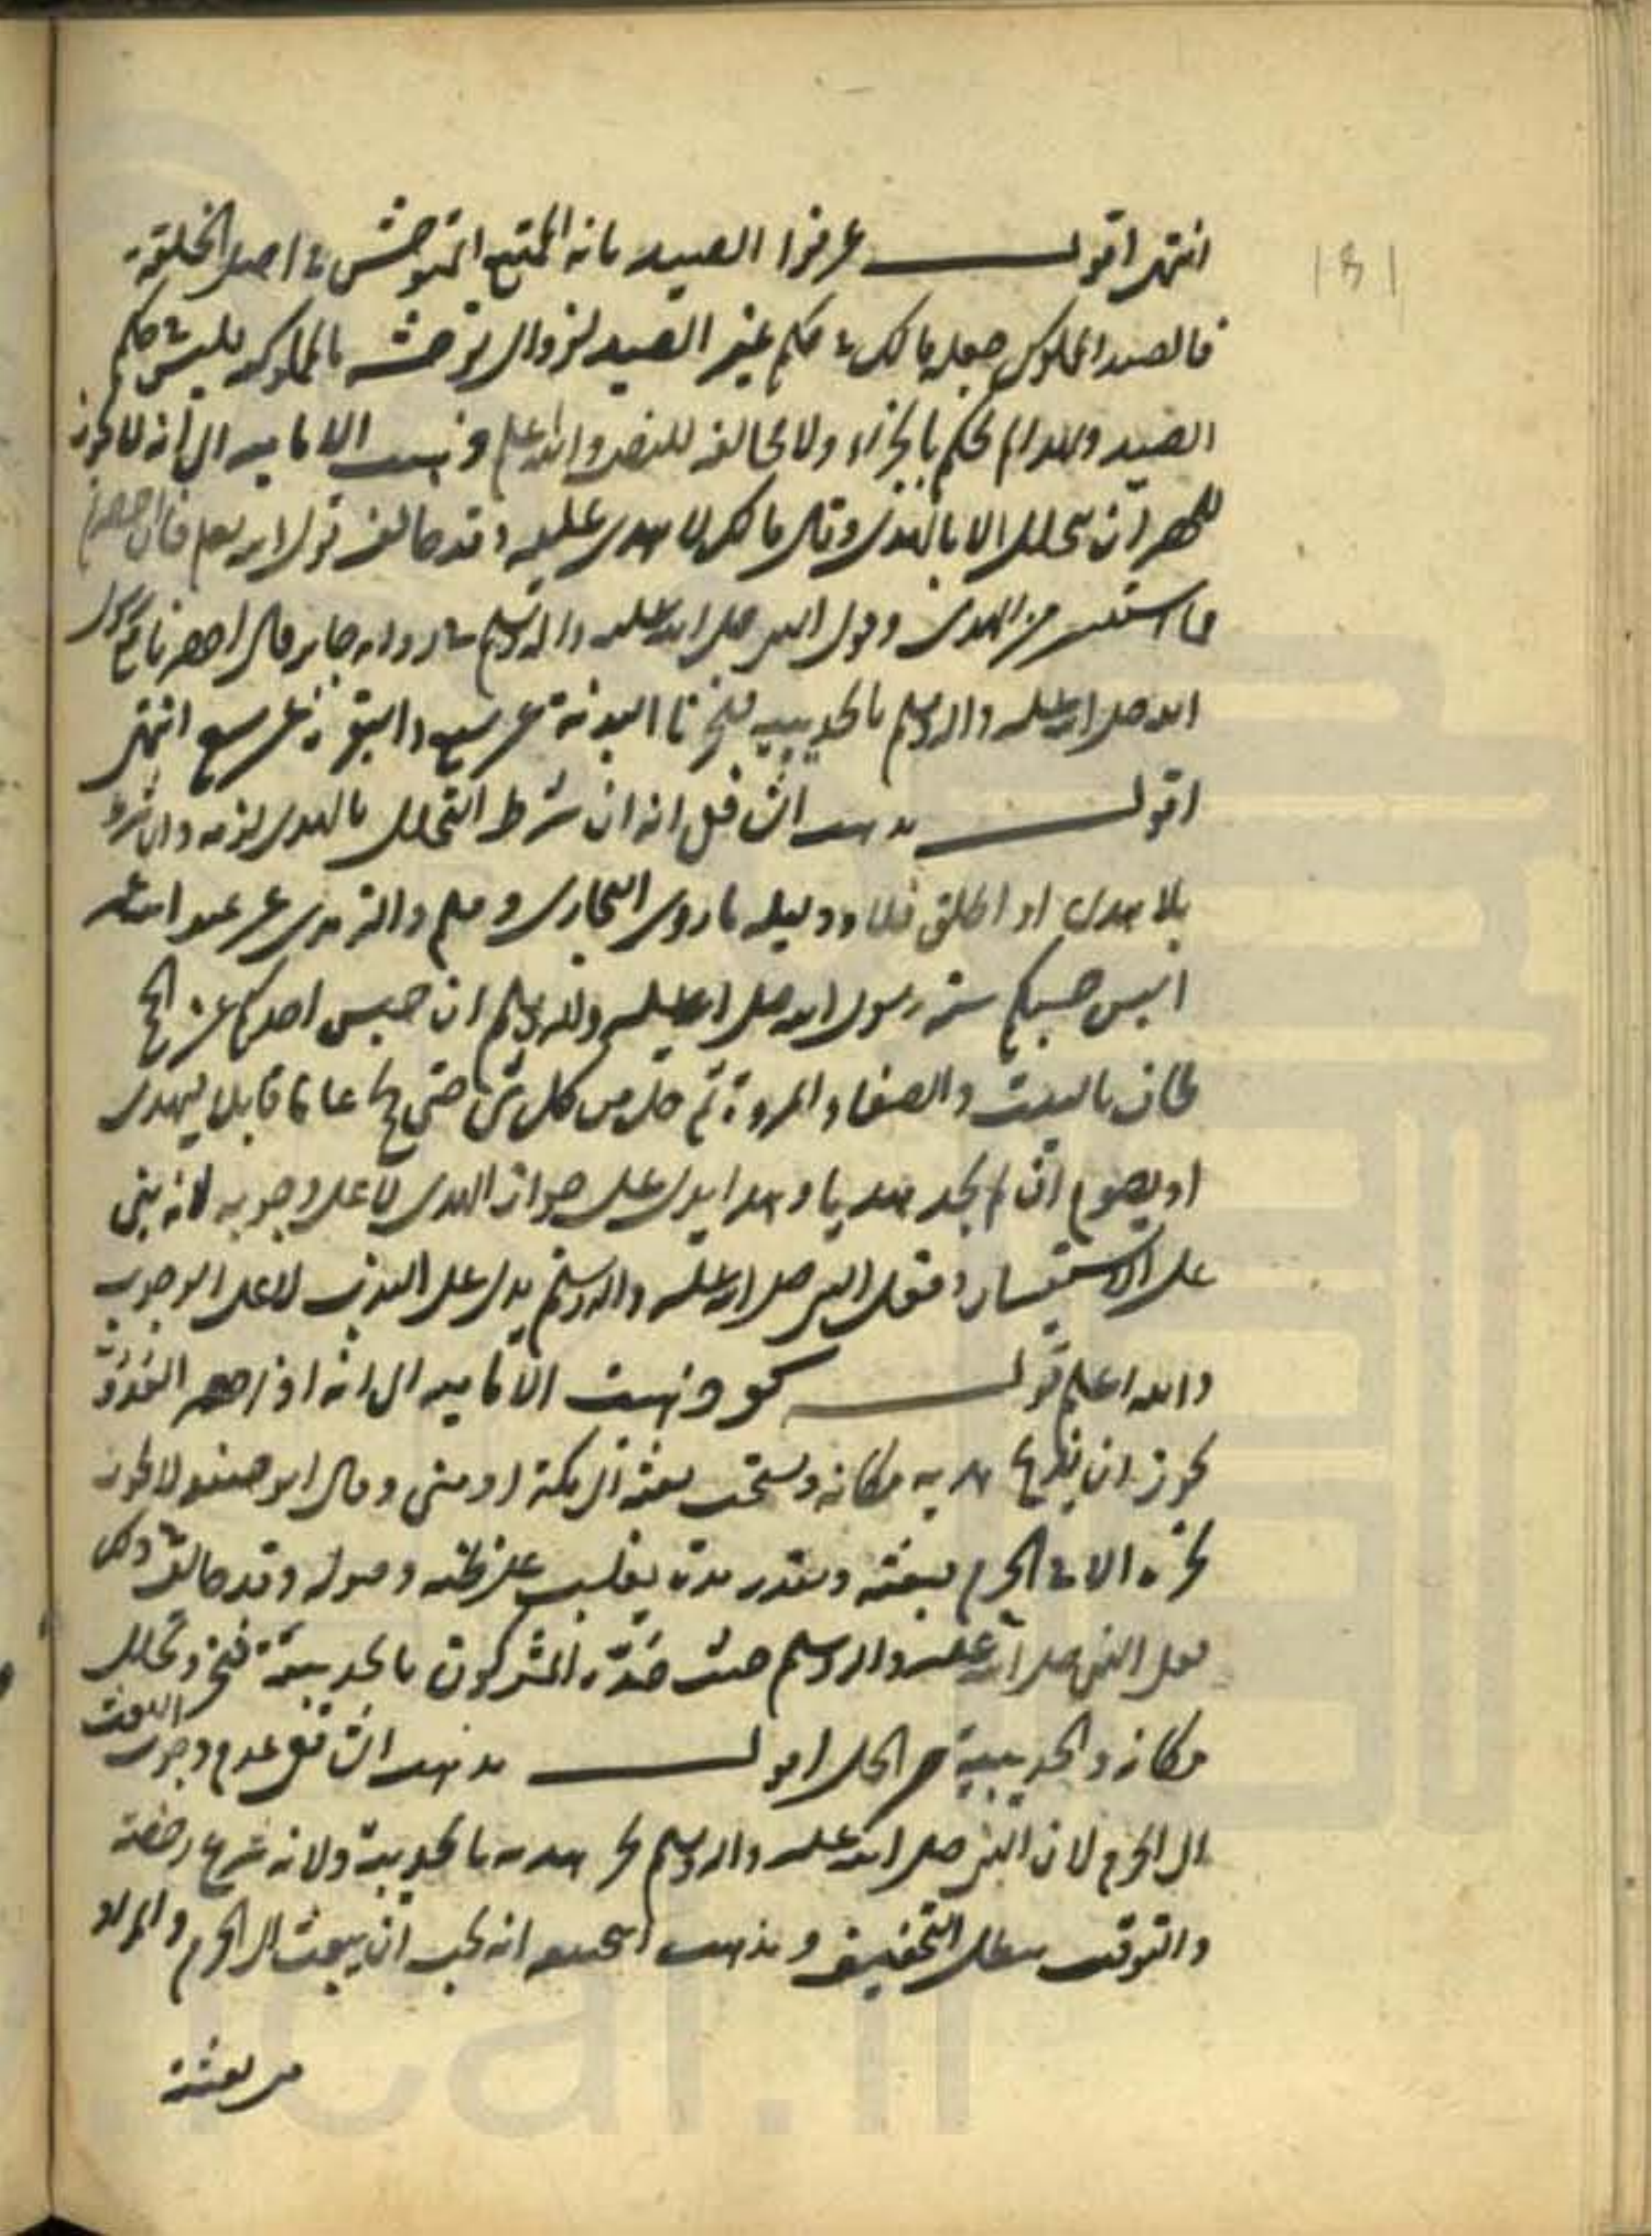 انتهى اقول عرفوا الصيد بانه الممتنع المتوحش في اصل الخلقة
فالصيد المملوك جعله مالك في حكم غير الصيد لزوال توحشه بالمملوكية فليس في حكم
الصيد ولهذا لم يحكم بالجزاء ولا مخالفة للنص والله اعلم وذهبت الامامية الى انه لا يجوز
للمحصر ان يتحلل الا بالهدى وقال مالك لا هدى عليه وقد خالف قول الله تعالى فان احصرتم
فما استيسر من الهدى وقول النبي صلى الله عليه واله وسلم في رواية جابر قال احصرنا مع رسول
الله صلى الله عليه واله وسلم بالحديبية فنحرنا البدنة عن سبع والبقرة عن سبع انتهى
اقول مذهب الشافعى انه ان شرط التحلل بالهدى لزمه وان شرط
بلا هدى او اطلق فلا ودليله ما روى البخارى ومسلم والترمذى عن
اليس حسبكم سنة رسول الله صلى الله عليه واله وسلم ان حبس احدكم عن الحج
طاف بالبيت والصفا والمروة ثم حل من كل شئ حتى يحج عاما قابلا ليهدى
او يصوم ان لم يجد هديا وهذا يدل على جواز الهدى لا على وجوبه لانه بنى
على الاستيسار وفعل النبي صلى الله عليه واله وسلم يدل على الندب لا على الوجوب
والله اعلم قوله كو وذهبت الامامية الى انه اذا احصر العدو
يجوز ان يذبح هديه مكانه ويستحب بعثه الى مكة او منى وقال ابو حنيفه لا يجوز
نحره الا في الحرم فيبعثه ويقدر مدة يغلب على ظنه وصوله وقد خالف في ذلك
فعل النبي صلى الله عليه واله وسلم حيث صده المشركون بالحديبية فنحر وتحلل
مكانه والحديبية من الحل اقول مذهب الشافعى عدم وجوب البعث
الى الحرم لان النبي صلى الله عليه واله وسلم نحر هديه بالحديبية ولانه شرع رخصة
والتوقيت يبطل التخفيف ومذهب ابى حنيفه انه يجب ان يبعث الى الحرم والمراد
من بعثه
181